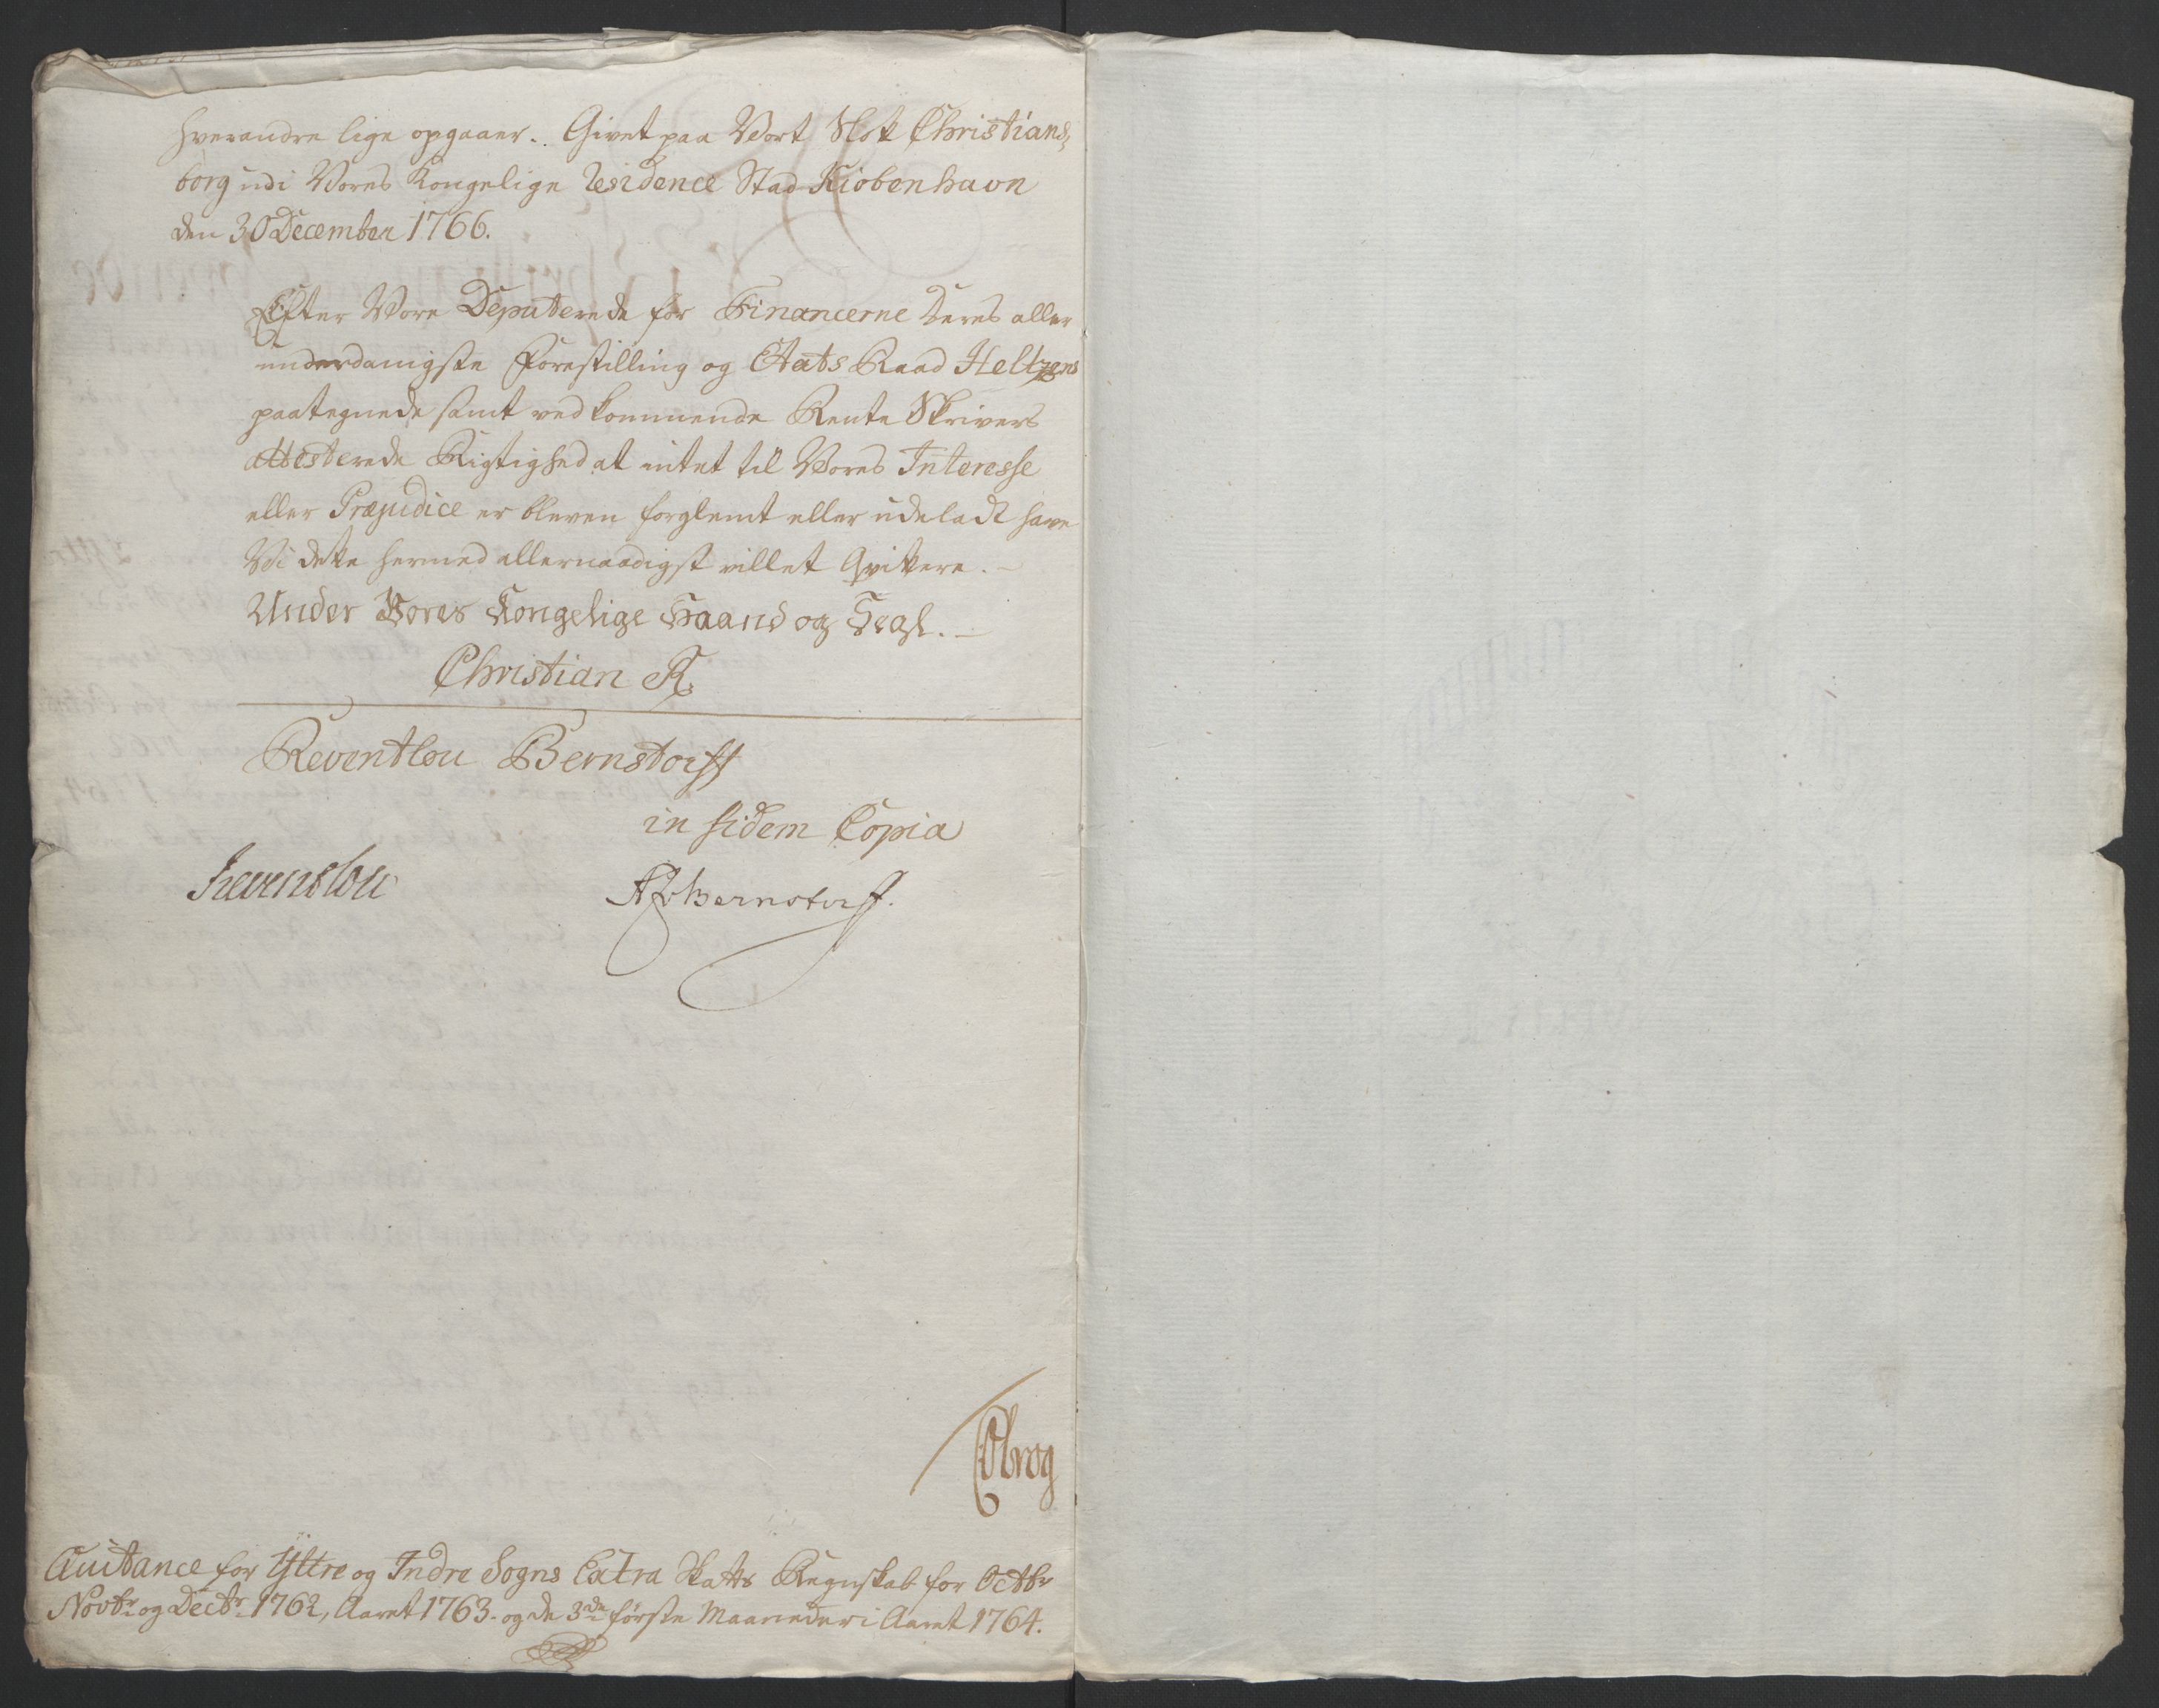 hverandre lige opgaaer. Givet paa Vort Slot Christians,
borg udi Vores Kongelige Residence Stad Kiøbenhavn
den 30 December 1766.
Efter Vore Deputerede for Financerne Deres aller
underdanigste Forestilling og Etats Raad Heltzens
paategnede samt vedkommende Rente Skrivers
attesterede Rigtighed at intet til Vores Interesse
eller Præjudice er bleven forglemt eller udeladt have
Vi dette hermed allernaadigst villet Qvittere.
Under Vores Kongelige Haand og Segl.
Christian R.
Reventlou Bernstorff
in fidem Copia
Reventlou
APBernstorff.
Qvitance for Yttre og Indre Sogns Extra Skatts Regnskab for Octbr
Novbr og Decbr 1762, Aaret 1763. og de 3de første Maaneder i Aaret 1764.